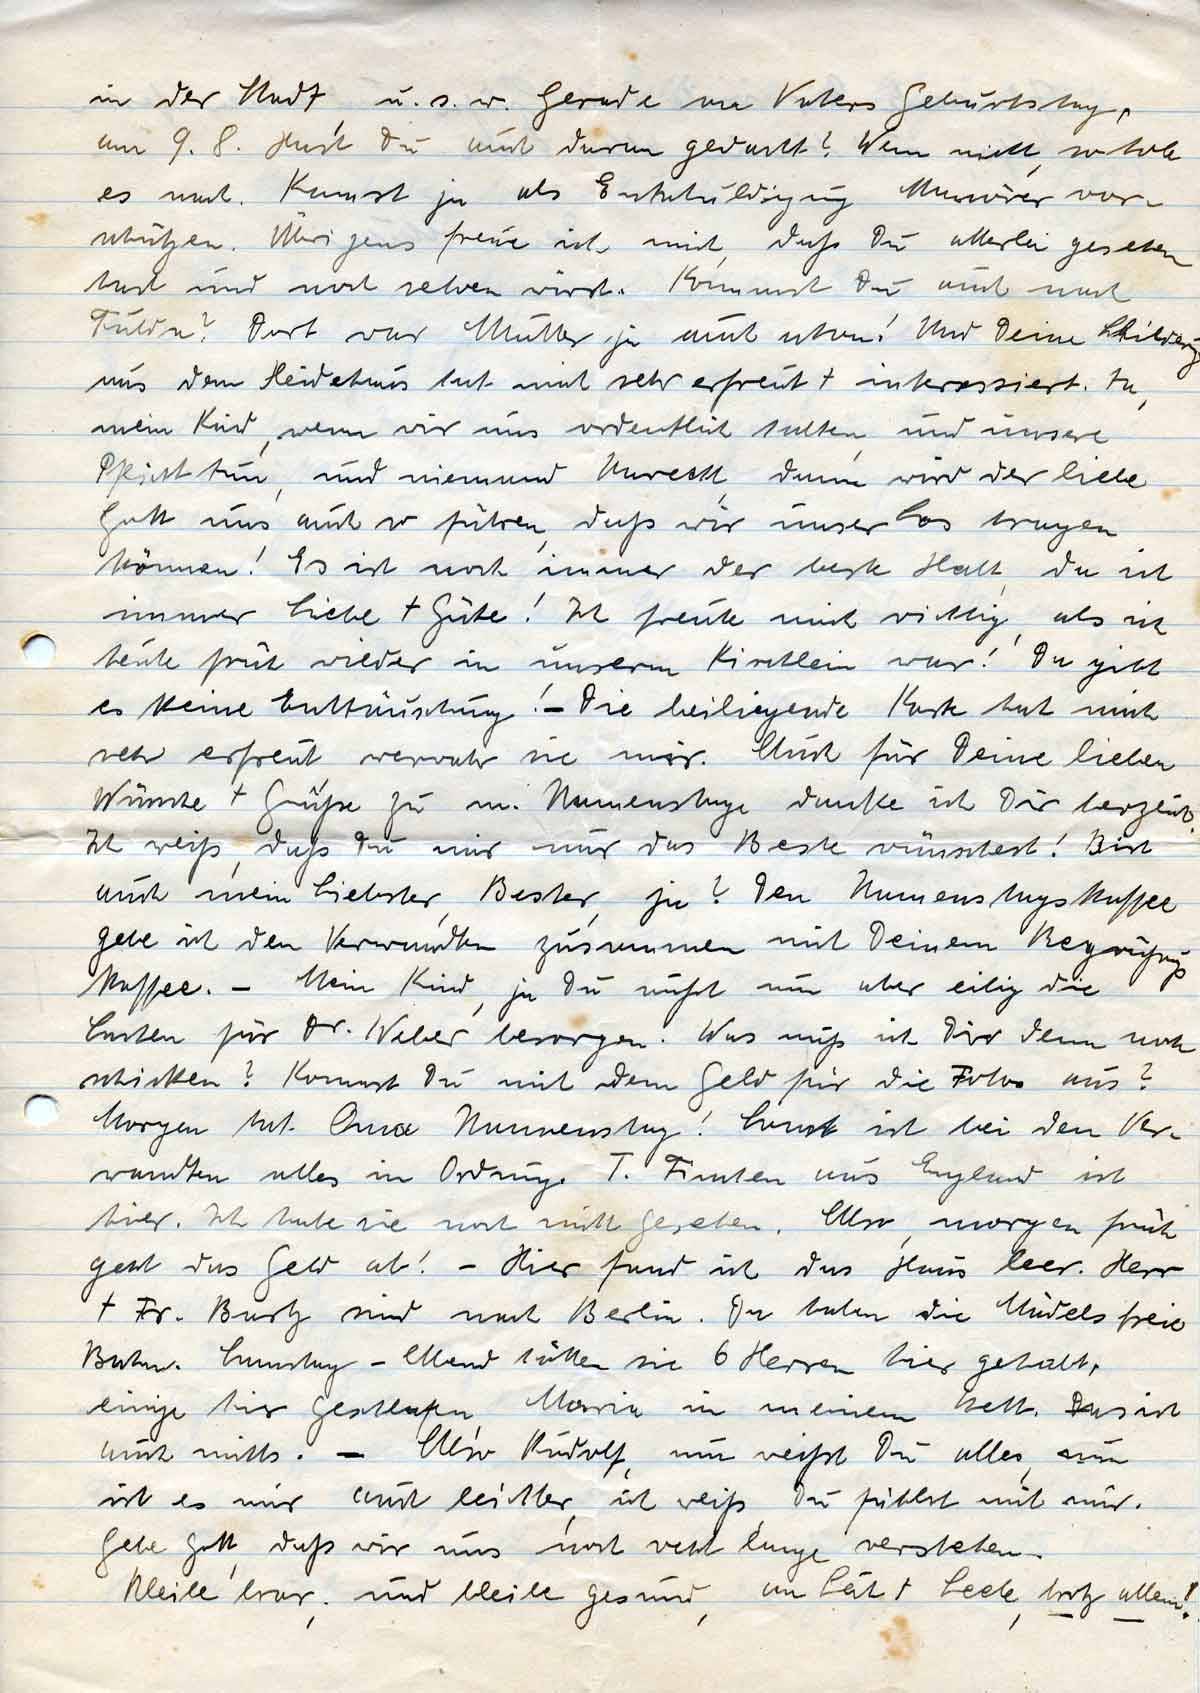 in der Stadt u. s. w. Gerade an Vaters Geburtstag,
am 9. 8. Hast Du auch daran gedacht? Wenn nicht, so hole
es nach. Kannst ja als Entschuldigung Manöver vor-
schützen. Übrigens freue ich mich, daß Du allerlei gesehen
hast und noch sehen wirst. Kommst Du auch nach
Fulda? Dort war Mutter ja auch schon! Und Deine Schilderg
aus dem Heidehaus hat mich sehr erfreut + interessiert. Ja,
mein Kind, wenn wir uns ordentlich halten und unsere
Pflicht tun, und niemand Unrecht, dann wird der liebe
Gott uns auch so führen, daß wir unser Los tragen
können! Es ist noch immer der beste Halt, da ist
immer Liebe + Güte! Ich freute mich richtig, als ich
heute früh wieder in unserm Kirchlein war! Da gibt
es keine Enttäuschung! – Die beiliegende Karte hat mich
sehr erfreut verwahr sie mir. Auch für Deine lieben
Wünsche + Grüße zu m. Namenstage danke ich Dir herzlich.
Ich weiß, daß Du mir nur das Beste wünschest! Bist
auch mein Liebster, Bester, ja? Den Namenstagskaffee
gebe ich den Verwandten zusammen mit Deinem Begrüßungs
kaffee. – Mein Kind, ja Du mußt nun aber eilig die
Karten für Dr. Weber besorgen. Was muß ich Dir denn noch
schicken? Kommst Du mit dem Geld für die Fotos aus?
Morgen hat Oma Namenstag! Sonst ist bei den Ver-
wandten alles in Ordnung. T. Finchen aus England ist
hier. Ich habe sie noch nicht gesehen. Also, morgen früh
geht das Geld ab! – Hier fand ich das Haus leer. Herr
+ Fr. Bartz sind nach Berlin. Da haben die Mädels freie
Bahn. Samstag – Abend hätten sie 6 Herren hier gehabt,
einige hier geschlafen, Maria in meinem Bett. Das ist
auch nichts. – Also Rudolf, nun weißt Du alles, nun
ist es mir auch leichter, ich weiß, Du fühlst mit mir.
Gebe Gott, daß wir uns noch recht lange verstehen.
Bleibe brav, und bleibe gesund, an Leib + Seele, trotz allem!